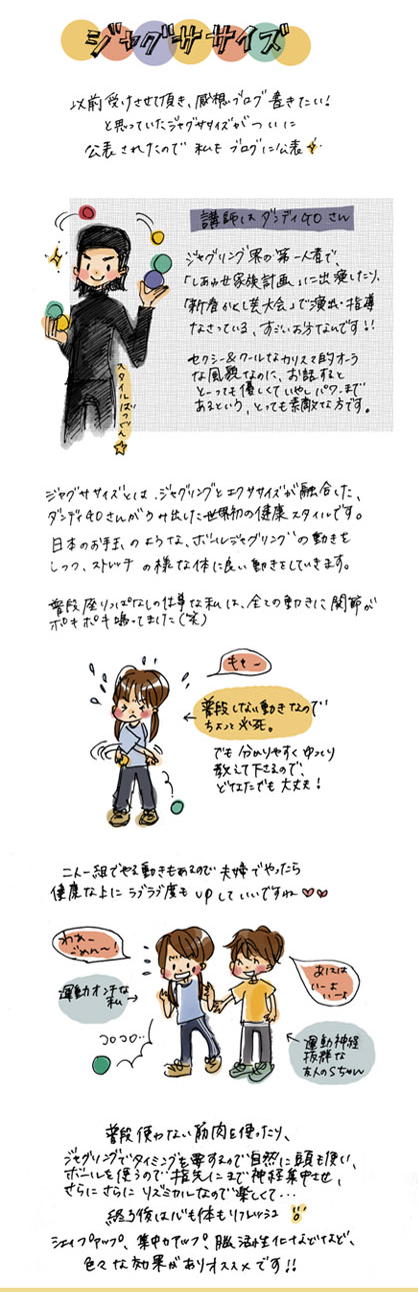 ジャグササイズ
以前受けさせて頂き、感想ブログ書きたい!
と思っていたジャグササイズがついに
公表されたので私もブログに公表☆
講師はダンディGOさん
ジャグリング界の第一人者で、
「しあわせ家族計画」に出演したり、
「新春かくし芸大会」で演出・指導
なさっている、すごいお方なんです!!
セクシー&クールなカリスマ的オーラ
な風貌なのに、お話すると
とーっても優しくていやしパワーまで
あるという、とっても素敵な方です。
スタイルばつぐん☆
ジャグササイズとは、ジャグリングとエクササイズが融合した、
ダンディGOさんがうみ出した世界初の健康スタイルです。
日本のお手玉のような、ボールジャグリングの動きを
しつつ、ストレッチの様な体に良い動きをしていきます。
普段座りっぱなしの仕事な私は、全ての動きに関節が
ポキポキ鳴ってました(笑)
普段しない動きなので
ちょっと必死。
でも分かりやすくゆっくり
教えて下さるので、
どなたでも大丈夫!
二人一組でやる動きもあるので夫婦でやったら
健康な上にラブラブ度もupしていいですね♥♥
わあー
ごめんー!
運動オンチな
私
コロコロ…
いーよ
いーよ
運動神経
抜群な
友人のSちゃん
普段使わない筋肉を使ったり、
ジャグリングでタイミングを要するので自然に頭も使い、
ボールを使うので指先にまで神経集中させ、
さらにさらにリズミカルなので楽しくて…
終了後は心も体もリフレッシュ
シェイプアップ、集中力アップ、脳活性化などなど、
色々な効果がありオススメです!!